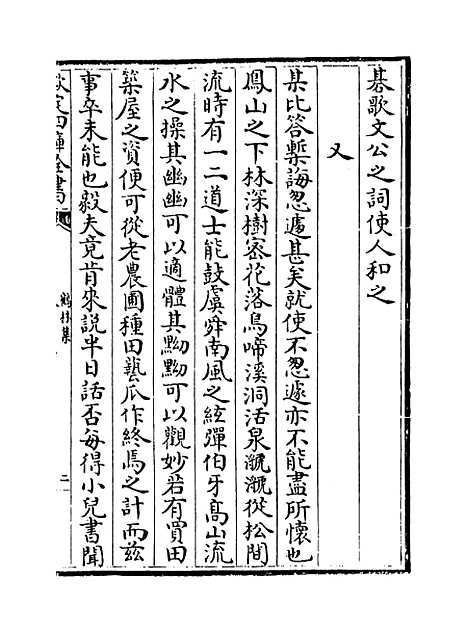 棊歌文公之詞使人和之
又
某比答槧誨怱遽甚矣就使不怱遽亦不能盡所懷也
鳳山之下林深樹宻花落鳥啼溪洞活泉㶁㶁從松間
流時有一二道士能鼓虞舜南風之絃彈伯牙髙山流
水之操其幽幽可以適體其黝黝可以觀妙若有買田
築屋之資便可從老農圃種田蓺瓜作終焉之計而兹
事卒未能也毅夫竟肯來説半日話否每得小兒書聞
欽定四庫全書
鶴林集
二